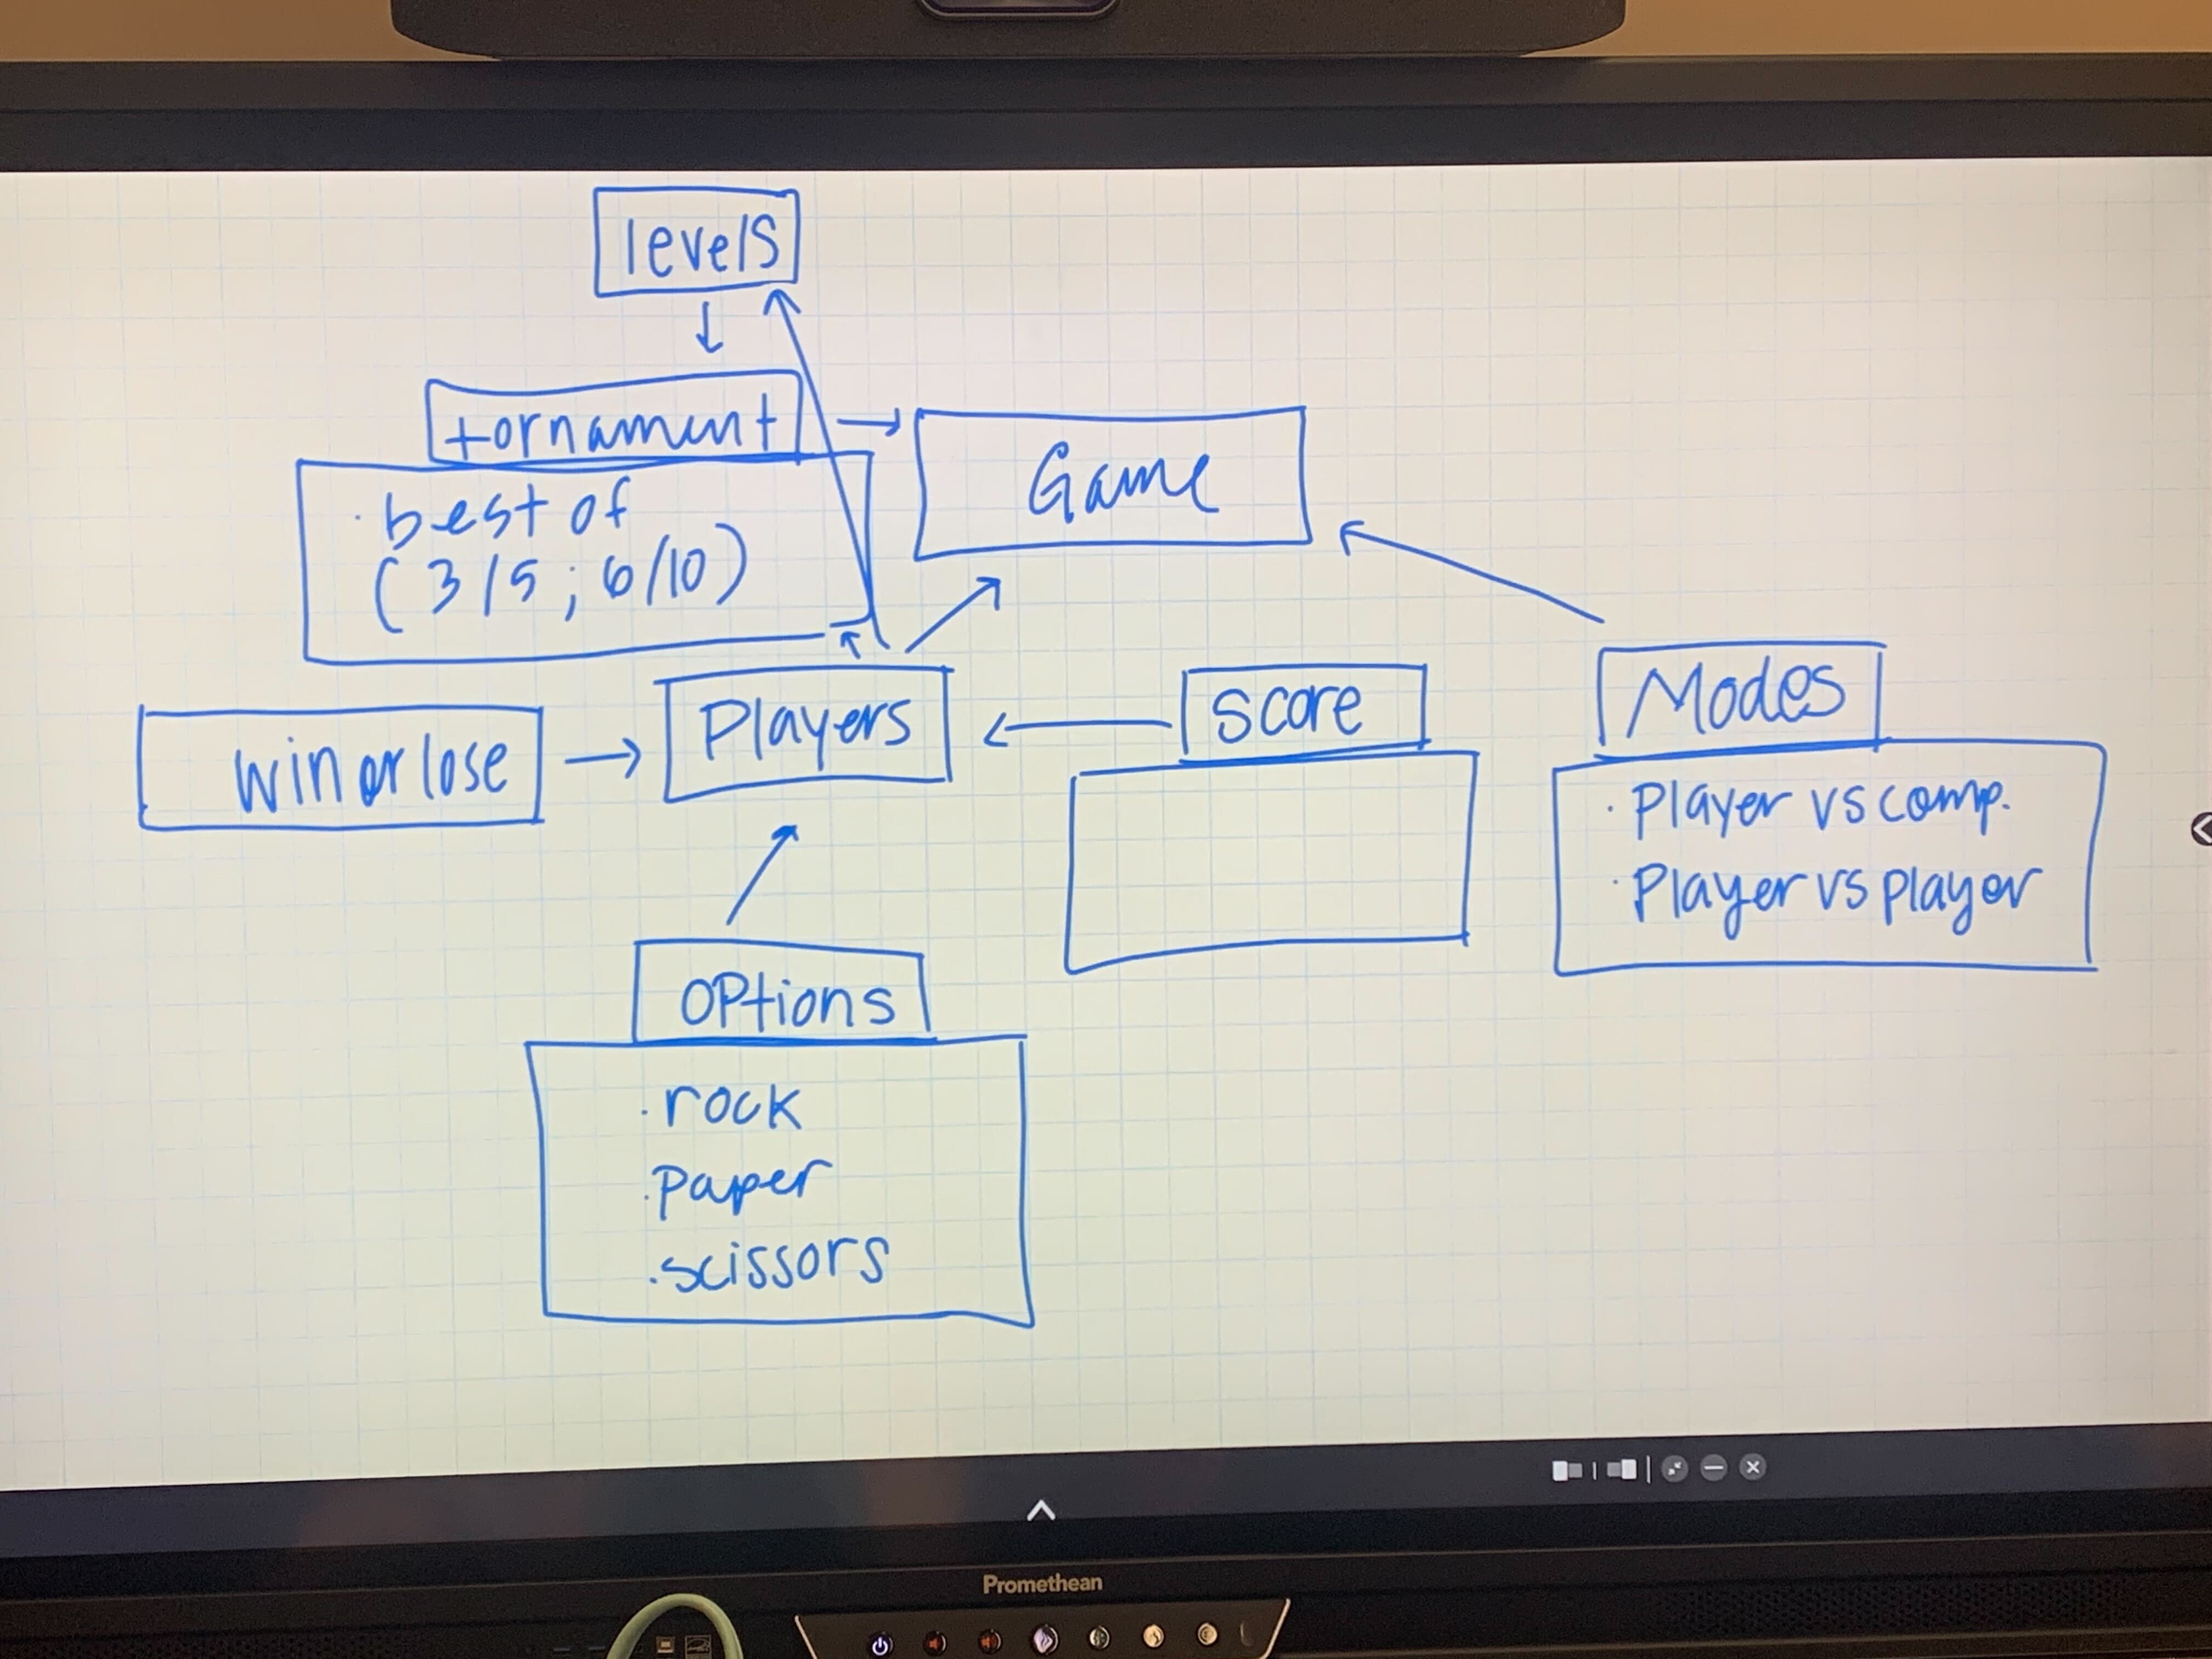 levels
tornament
best of
(3/5; 6/10)
Game
Players
win or lose
score
Modes
· Player vs comp.
· Player vs player
options
· rock
· paper
· scissors
Promethean